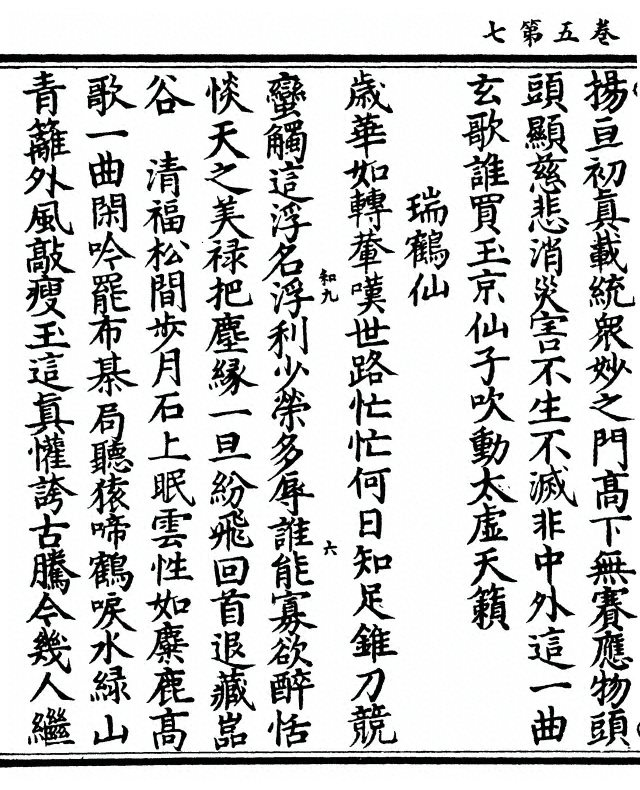 卷五第七
揚亘初真載統衆妙之門高下無賽應物頭
頭顯慈悲消災害不生不滅非中外這一曲
玄歌誰買玉京仙子吹動太虛天籟
瑞鶴仙
歲華如轉轂嘆世路忙忙何日知足錐刀競
蠻觸這浮名浮利少榮多辱誰能寡欲醉恬
和九
六
惔天之美禄把塵緣一旦紛飛回首退藏嵓
谷　清福松間步月石上眠雲性如麋鹿高
歌一曲閑吟罷布棊局聽猿啼鶴唳水緑山
青籬外風敲瘦玉這真懽誇古騰今幾人繼